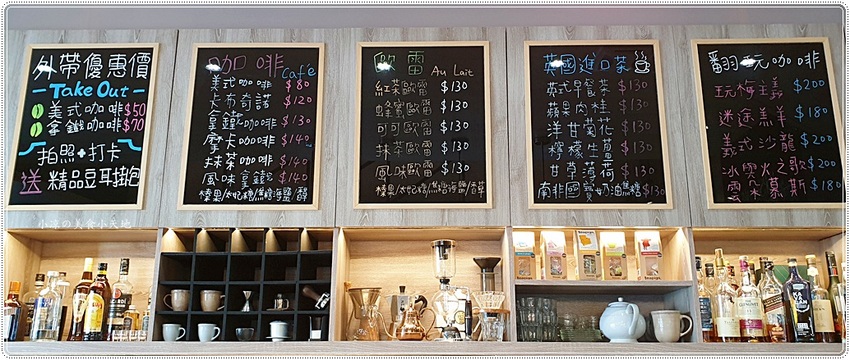 外帶優惠價
Take Out
美式咖啡 $50
拿鐵咖啡 $70
拍照+打卡
送 精品豆耳掛包
咖啡
Café
美式咖啡 $80
卡布奇諾 $120
拿鐵咖啡 $130
摩卡咖啡 $140
抹茶咖啡 $140
風味拿鐵 $140
榛果/太妃糖/焦糖海鹽/
歐蕾
Au Lait
紅茶歐蕾 $130
蜂蜜歐蕾 $130
可可歐蕾 $130
抹茶歐蕾 $130
風味歐蕾 $130
榛果/太妃糖/焦糖海鹽/香草
英國進口茶
英式早餐茶 $130
蘋果肉桂 $130
洋甘菊花 $130
檸檬生薑 $130
甘草薄荷 $130
南非國寶奶油焦糖 $130
翻玩咖啡
玩梅主義 $200
迷途羔羊 $180
美式沙龍 $200
冰與火之歌 $200
雲朵慕斯 $180
小涼の美食小天地